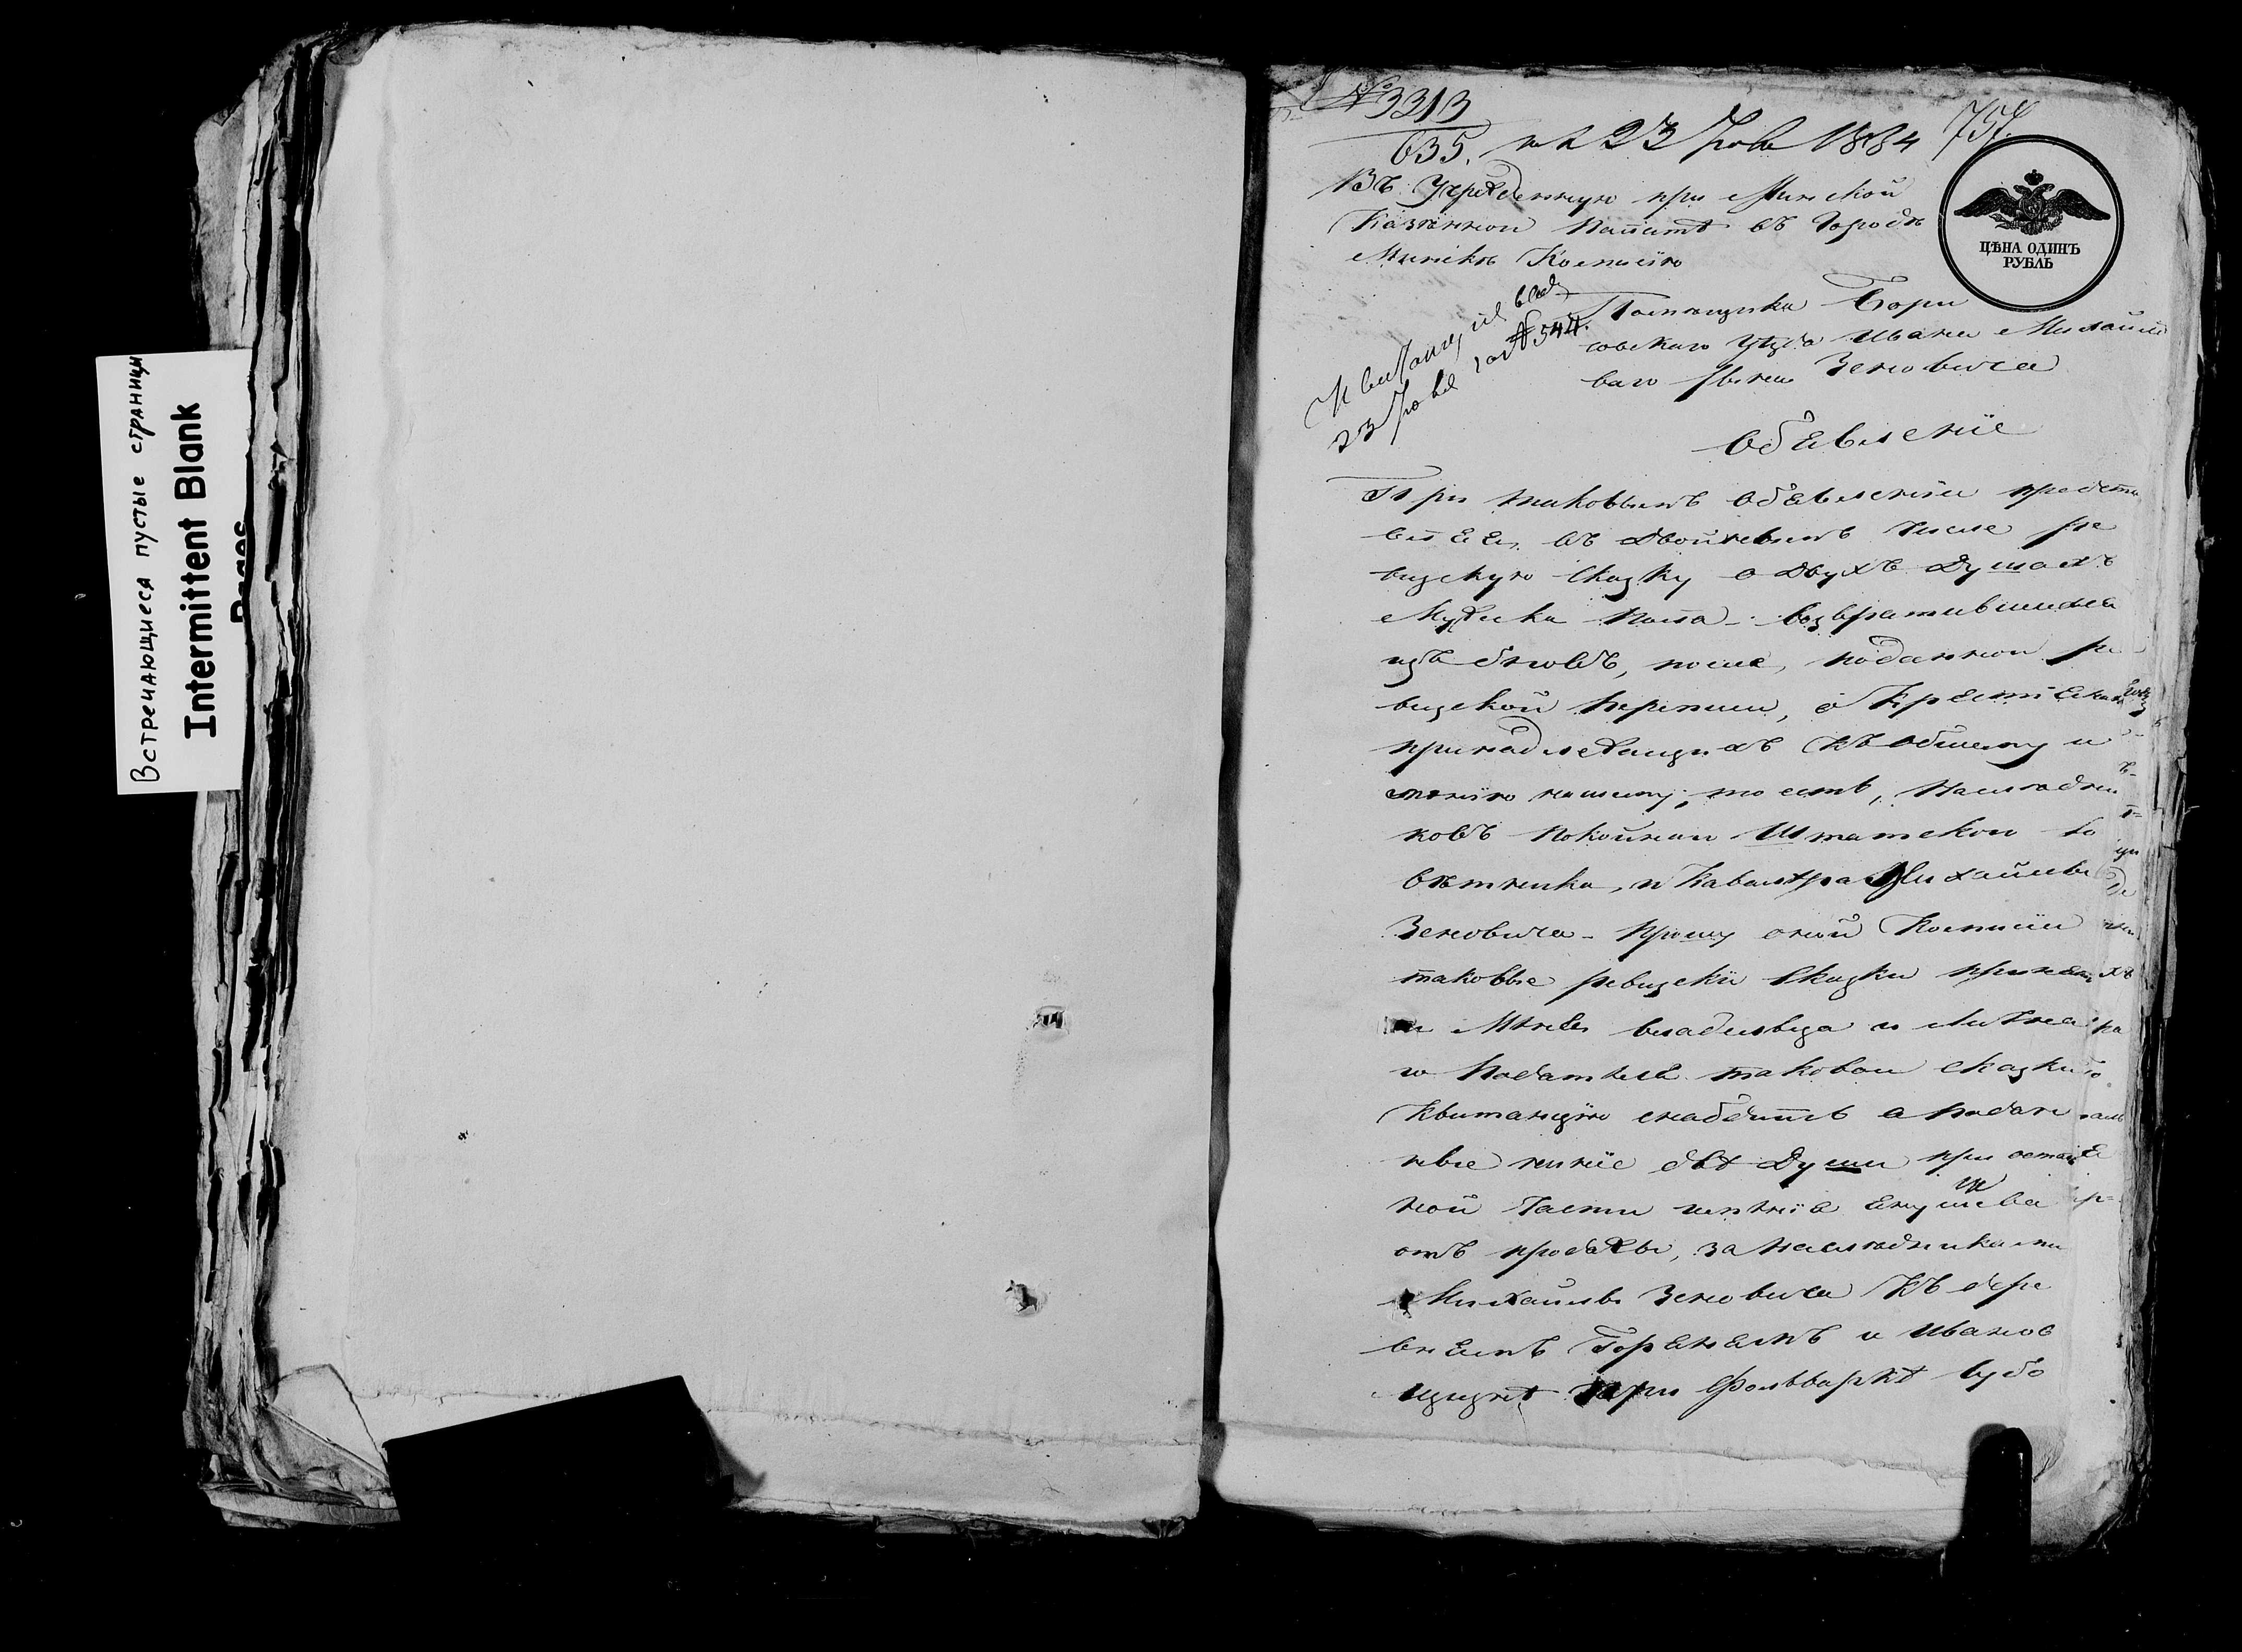 Встречающиеся пустые страницы
Intermittent Blank
Pages
№ 3313
635.
23 1834
757.
ЦѢНА ОДИНЪ
РУБЛЬ
Въ Учрежденную при Минской
Казенной Палатѣ въ Городѣ
Минскѣ Комисію
№ 544.
23
Помещика Бори
совскаго уезда Ивана Михайло
ваго сына Зеновича
Объявленіе
При таковымъ объявленіи предста
вляя въ двойневымъ числе ре
визскую сказку о двухъ душахъ
мужска пола возвратившихся
изъ бѣговъ, после поданной ре
визской переписи, о крестьянахъ
принадлежащихъ къ общему и
менію нашему, то есть, Наследни
ковъ покойнаи Штатскои со
ветника, и Кавалера Михайлы
Зеновича прошу оной Комисіи
таковые ревизскіи сказки принять
и меня владельца и
подателя таковои сказки
квитанцію снабдить а подан
ные ныне обѣ души при остал
ной части именія
отъ продажы, за наследниками
Михайлы Зеновича къ дере
внямъ Горанамъ и Иванов
щизнѣ при Фольваркѣ